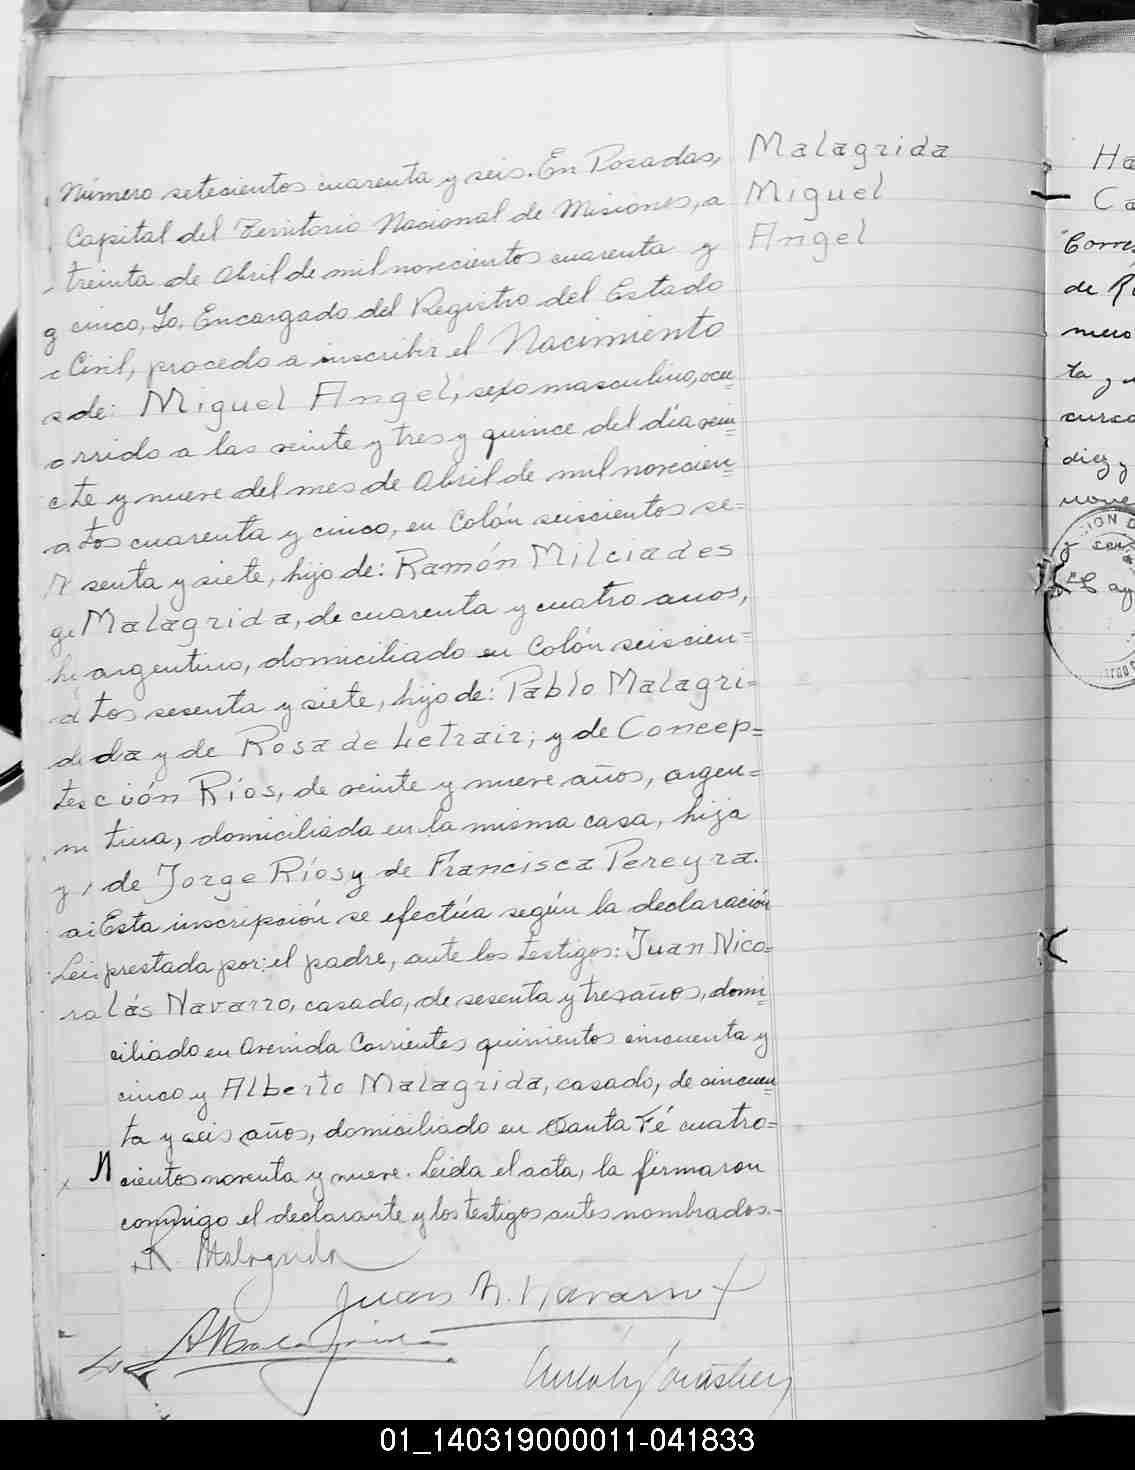 Malagrida
Miguel
Angel
Número setecientos cuarenta y seis. En Posadas,
Capital del Territorio Nacional de Misiones, a
treinta de Abril de mil novecientos cuarenta y
cinco, Yo, Encargado del Registro del Estado
Civil, procedo a inscribir el Nacimiento
de: Miguel Angel, sexo masculino, ocu=
rrido a las veinte y tres y quince del día vein=
te y nueve del mes de Abril de mil novecien=
tos cuarenta y cinco, en Colón seiscientos se=
senta y siete, hijo de: Ramón Milciades
Malagrida, de cuarenta y cuatro anos,
argentino, domiciliado en Colón seiscien=
tos sesenta y siete, hijo de: Pablo Malagri=
da y de Rosa de Letrair; y de Concep=
ción Ríos, de veinte y nueve años, argen=
tina, domiciliada en la misma casa, hija
de Jorge Ríos y de Francisca Pereyra.
Esta inscripción se efectúa según la declaración
prestada por: el padre, ante los testigos: Juan Nico=
lás Navarro, casado, de sesenta y tres años, domi=
ciliado en Avenida Corrientes quinientos cincuenta y
cinco y Alberto Malagrida, casado, de cincuen=
ta y seis años, domiciliado en Santa Fé cuatro=
cientos noventa y nueve. Leida el acta, la firmaron
conmigo el declarante y los testigos antes nombrados.-
R. Malagrida
Juan N. Navarro
A Malagrida
Ha
Ca
Corres
de R
mero
ta y
curso
diez y
nove
01_140319000011-041833